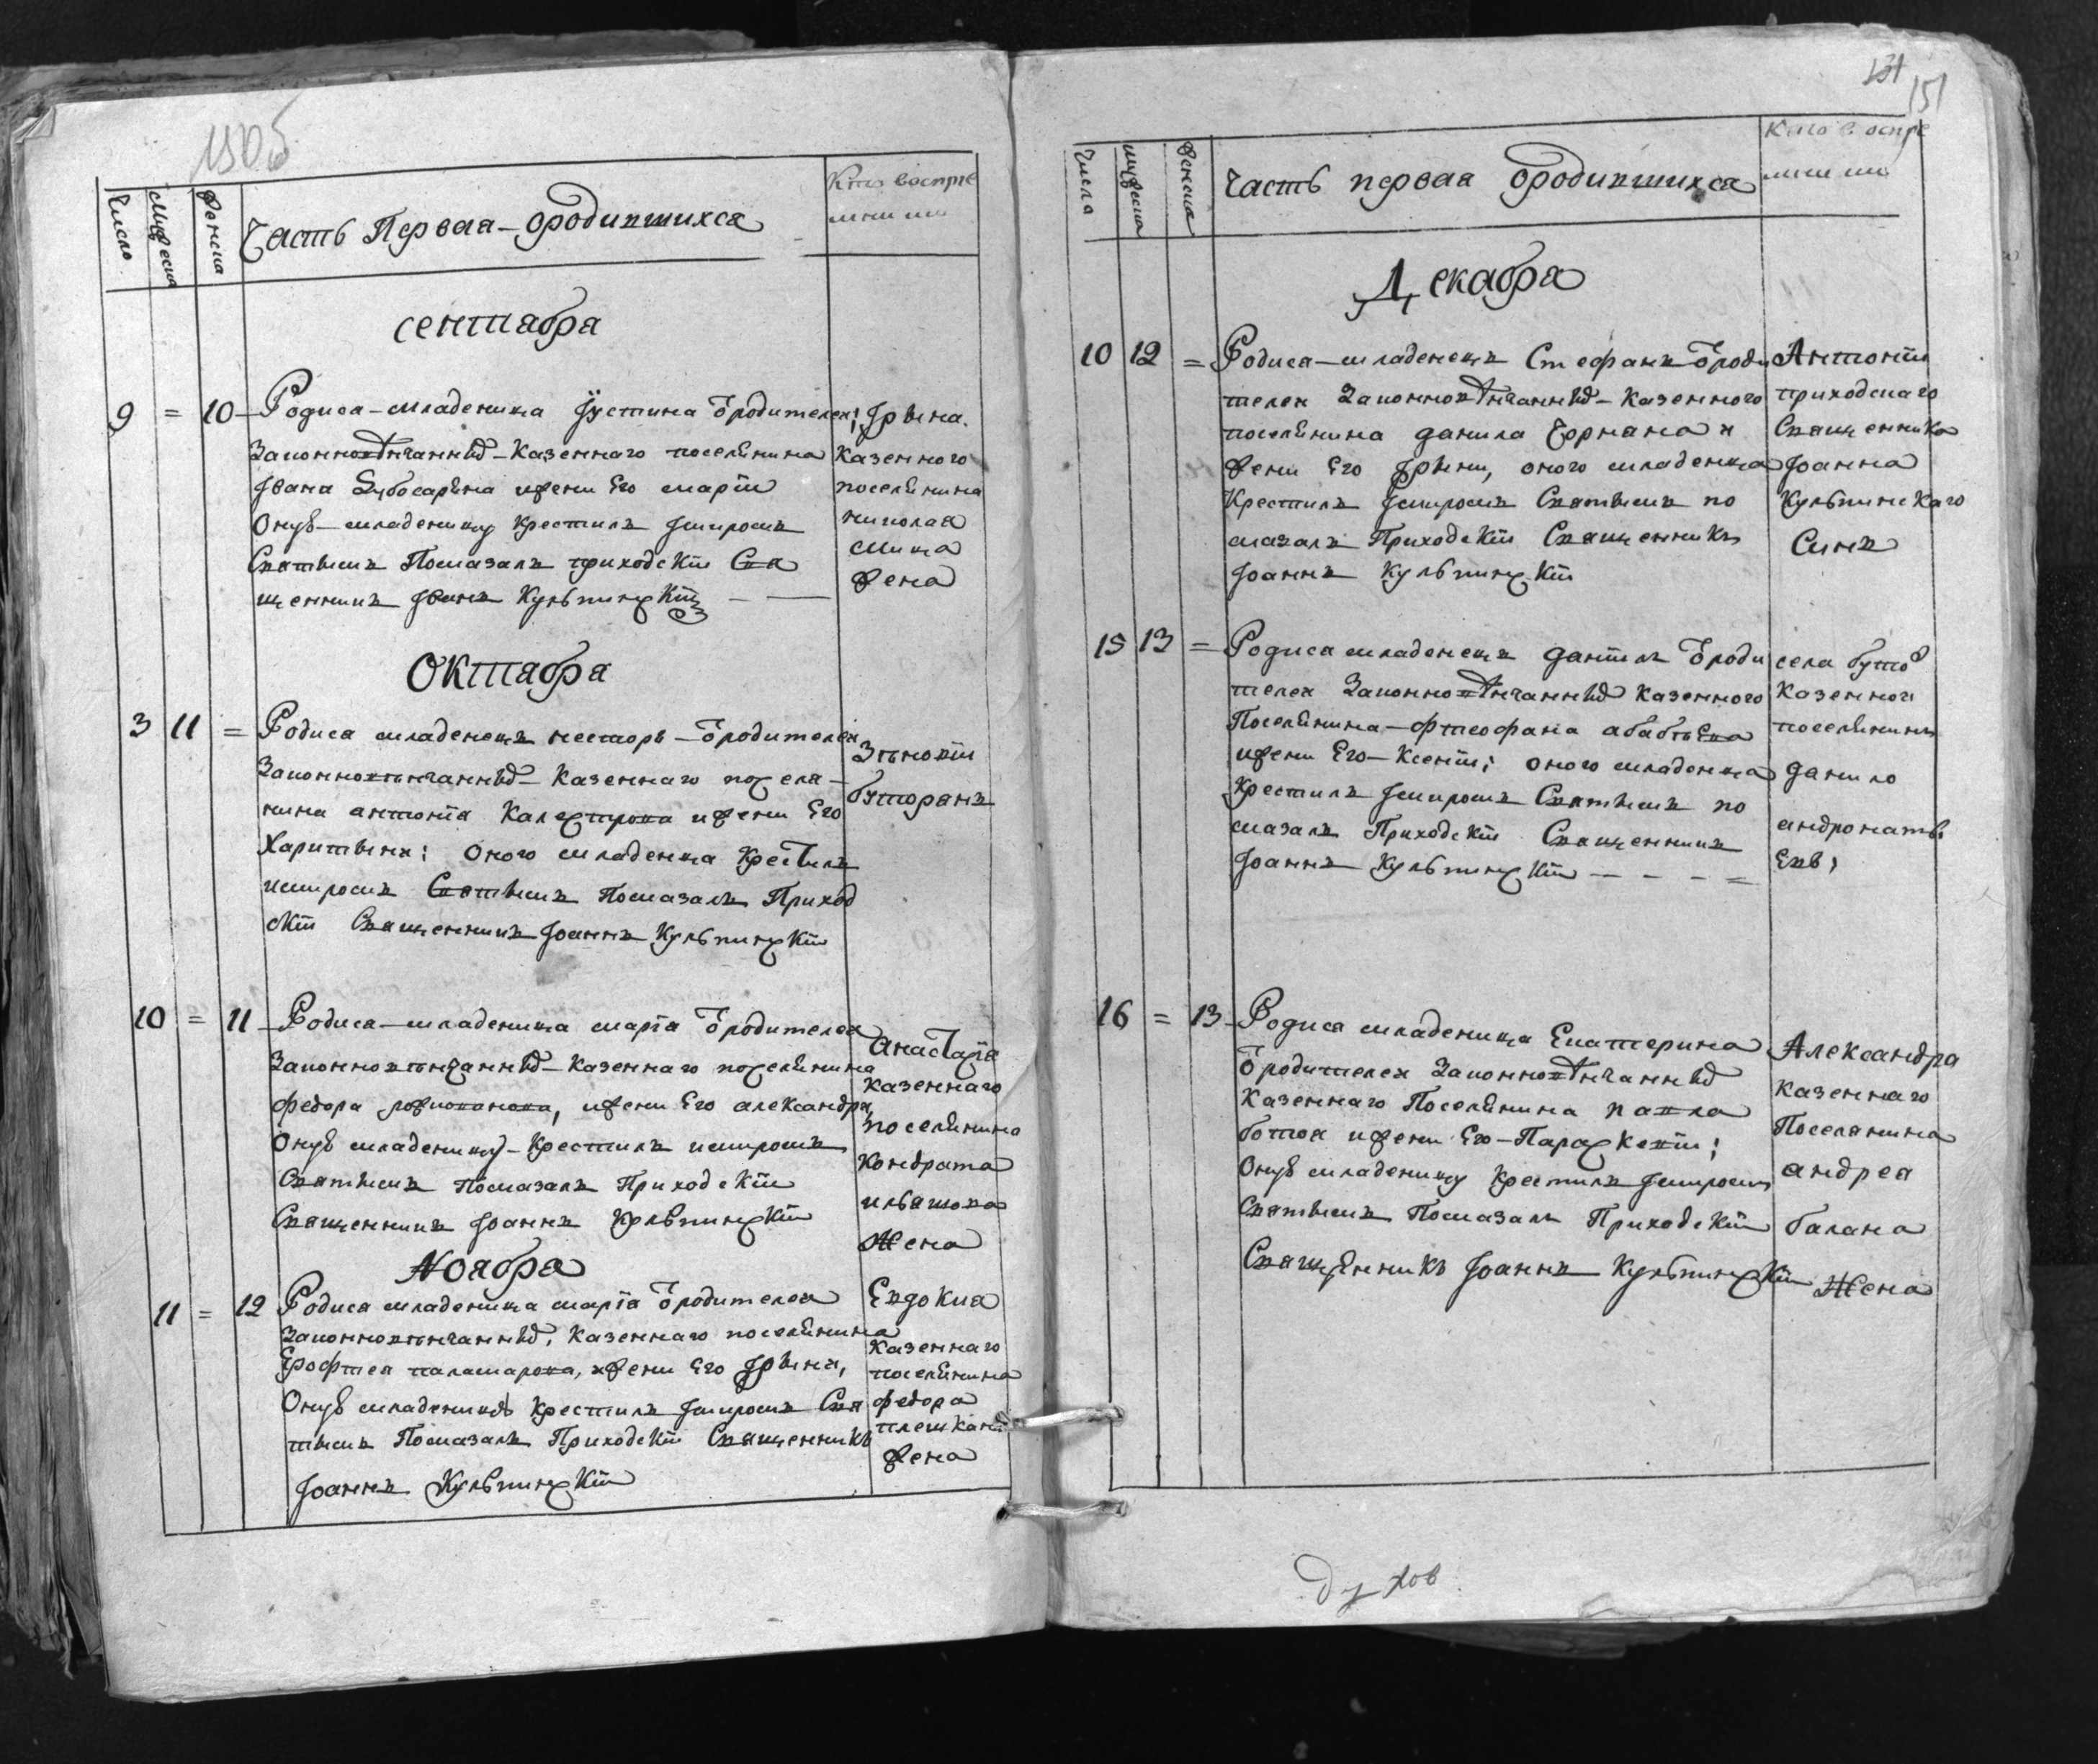 150об
Число
Мужеска
Женска
Часть Первая о родившихся
Кто воспріе
мники
сентября
9 = 10 Родися младеница Іустина ѿ родителей
законновѣнчанныхъ казеннаго поселянина
Ивана Дубосарина и жени Его маріи
Оную младеницу крестилъ и миромъ
Святымъ Помазалъ приходскій Свя
щенникъ Іоаннъ Кульчинскій
Ірына
казенного
поселянина
николая
жена
Октября
3 11 = Родися младенецъ несторъ ѿ родителей
Законновѣнчанныхъ казеннаго поселя
нина антонія и жени Его
Харитыни: оного младенца Крестилъ
и миромъ Святымъ Помазалъ Приход
скій Священникъ Іоаннъ Кульчинскій
Зѣновій
буторанъ
10 = 11 Родися младеница марія ѿ родителей
Законновѣнчанныхъ казеннаго поселянина
федора и жени Его александри,
оную младеницу крестилъ и миромъ
Святымъ помазалъ Приходскій
Священникъ Іоаннъ Кульчинскій
анастасія
казеннаго
поселянина
кондрата
ильашова
Жена
Ноября
11 = 12 Родися младеница марія ѿ родителей
Законновѣнчанныхъ казеннаго поселянина
Ерофтея паламарова, и жени Его Ірыни,
Оную младеницу крестилъ и миромъ Свя
тымъ Помазалъ Приходскій Священникъ
Іоаннъ Кульчинскій
Евдокиа
казеннаго
поселянина
федора
жена
131
151
Число
Мужеска
Женска
Часть первая о родившихся
Кто воспріе
мники
Декабря
10 12 = Родися младенецъ Стефанъ ѿ роди
телей Законновѣнчанныхъ казенного
поселянина данила и
жени Его Ірыни, оного младенца
Крестилъ и миромъ Святымъ по
мазалъ Приходскій Священникъ
Іоаннъ Кульчинскій
Антоній
приходскаго
Священника
Іоанна
Кульчинскаго
Синъ
15 13 = Родися младенецъ даніилъ ѿ роди
телей Законновѣнчанныхъ казенного
Поселянина фтеофана
и жени Его Ксеніи; оного младенца
Крестилъ и миромъ Святымъ по
мазалъ Приходскій Священникъ
Іоаннъ Кульчинскій
села
казенной
поселянинъ
данило
16 = 13 Родися младеница Екатерина
ѿ родителей Законновѣнчанныхъ
казеннаго Поселянина павла
ботоя и жени Его Параскевіи;
Оную младеницу крестилъ и миромъ
Святымъ Помазалъ Приходскій
Священникъ Іоаннъ Кульчинскій
Александра
казеннаго
Поселянина
андрея
балана
Жена